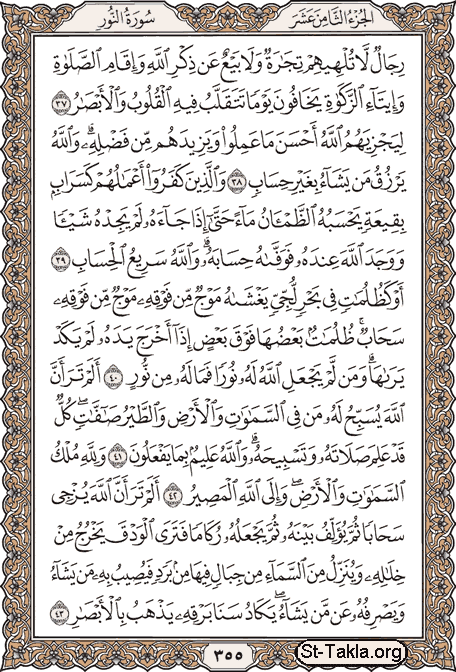 الجزء الثامن عشر
سورة النور
رِجَالٌ لَّا تُلْهِيهِمْ تِجَٰرَةٌ وَلَا بَيْعٌ عَن ذِكْرِ ٱللَّهِ وَإِقَامِ ٱلصَّلَوٰةِ
وَإِيتَآءِ ٱلزَّكَوٰةِ يَخَافُونَ يَوْمًا تَتَقَلَّبُ فِيهِ ٱلْقُلُوبُ وَٱلْأَبْصَٰرُ ٣٧
لِيَجْزِيَهُمُ ٱللَّهُ أَحْسَنَ مَا عَمِلُوا۟ وَيَزِيدَهُم مِّن فَضْلِهِۦ ۗ وَٱللَّهُ
يَرْزُقُ مَن يَشَآءُ بِغَيْرِ حِسَابٍ ٣٨ وَٱلَّذِينَ كَفَرُوٓا۟ أَعْمَٰلُهُمْ كَسَرَابٍۭ
بِقِيعَةٍ يَحْسَبُهُ ٱلظَّمْـَٔانُ مَآءً حَتَّىٰٓ إِذَا جَآءَهُۥ لَمْ يَجِدْهُ شَيْـًٔا
وَوَجَدَ ٱللَّهَ عِندَهُۥ فَوَفَّىٰهُ حِسَابَهُۥ ۗ وَٱللَّهُ سَرِيعُ ٱلْحِسَابِ ٣٩
أَوْ كَظُلُمَٰتٍ فِى بَحْرٍ لُّجِّىٍّ يَغْشَىٰهُ مَوْجٌ مِّن فَوْقِهِۦ مَوْجٌ مِّن فَوْقِهِۦ
سَحَابٌ ۚ ظُلُمَٰتٌۢ بَعْضُهَا فَوْقَ بَعْضٍ إِذَآ أَخْرَجَ يَدَهُۥ لَمْ يَكَدْ
يَرَىٰهَا ۗ وَمَن لَّمْ يَجْعَلِ ٱللَّهُ لَهُۥ نُورًا فَمَا لَهُۥ مِن نُّورٍ ٤٠ أَلَمْ تَرَ أَنَّ
ٱللَّهَ يُسَبِّحُ لَهُۥ مَن فِى ٱلسَّمَٰوَٰتِ وَٱلْأَرْضِ وَٱلطَّيْرُ صَٰٓفَّٰتٍ ۖ كُلٌّ
قَدْ عَلِمَ صَلَاتَهُۥ وَتَسْبِيحَهُۥ ۗ وَٱللَّهُ عَلِيمٌۢ بِمَا يَفْعَلُونَ ٤١ وَلِلَّهِ مُلْكُ
ٱلسَّمَٰوَٰتِ وَٱلْأَرْضِ ۖ وَإِلَى ٱللَّهِ ٱلْمَصِيرُ ٤٢ أَلَمْ تَرَ أَنَّ ٱللَّهَ يُزْجِى
سَحَابًا ثُمَّ يُؤَلِّفُ بَيْنَهُۥ ثُمَّ يَجْعَلُهُۥ رُكَامًا فَتَرَى ٱلْوَدْقَ يَخْرُجُ مِنْ
خِلَٰلِهِۦ وَيُنَزِّلُ مِنَ ٱلسَّمَآءِ مِن جِبَالٍ فِيهَا مِنۢ بَرَدٍ فَيُصِيبُ بِهِۦ مَن يَشَآءُ
وَيَصْرِفُهُۥ عَن مَّن يَشَآءُ ۖ يَكَادُ سَنَا بَرْقِهِۦ يَذْهَبُ بِٱلْأَبْصَٰرِ ٤٣
٣٥٥
St-Takla.org